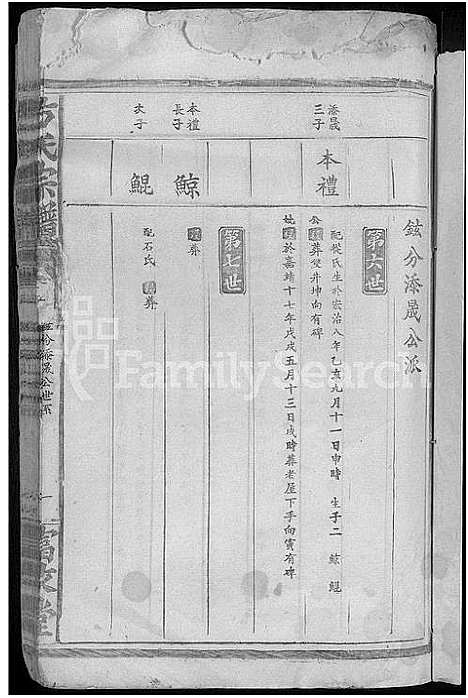 鉉分添晟公派
第六世
添晟三子
本禮
配從氏生於宏治八年乙亥九月十一日申時 生子二 鯨 鯤
公 葬雙井坤向有碑
妣 於嘉靖十七年戊戌五月十三日戌時葬老屋下手向寅有碑
第七世
本禮長子
鯨
葬
次子
鯤
配石氏 葬
氏宗譜
分添晟公世系
堂
FamilySearch